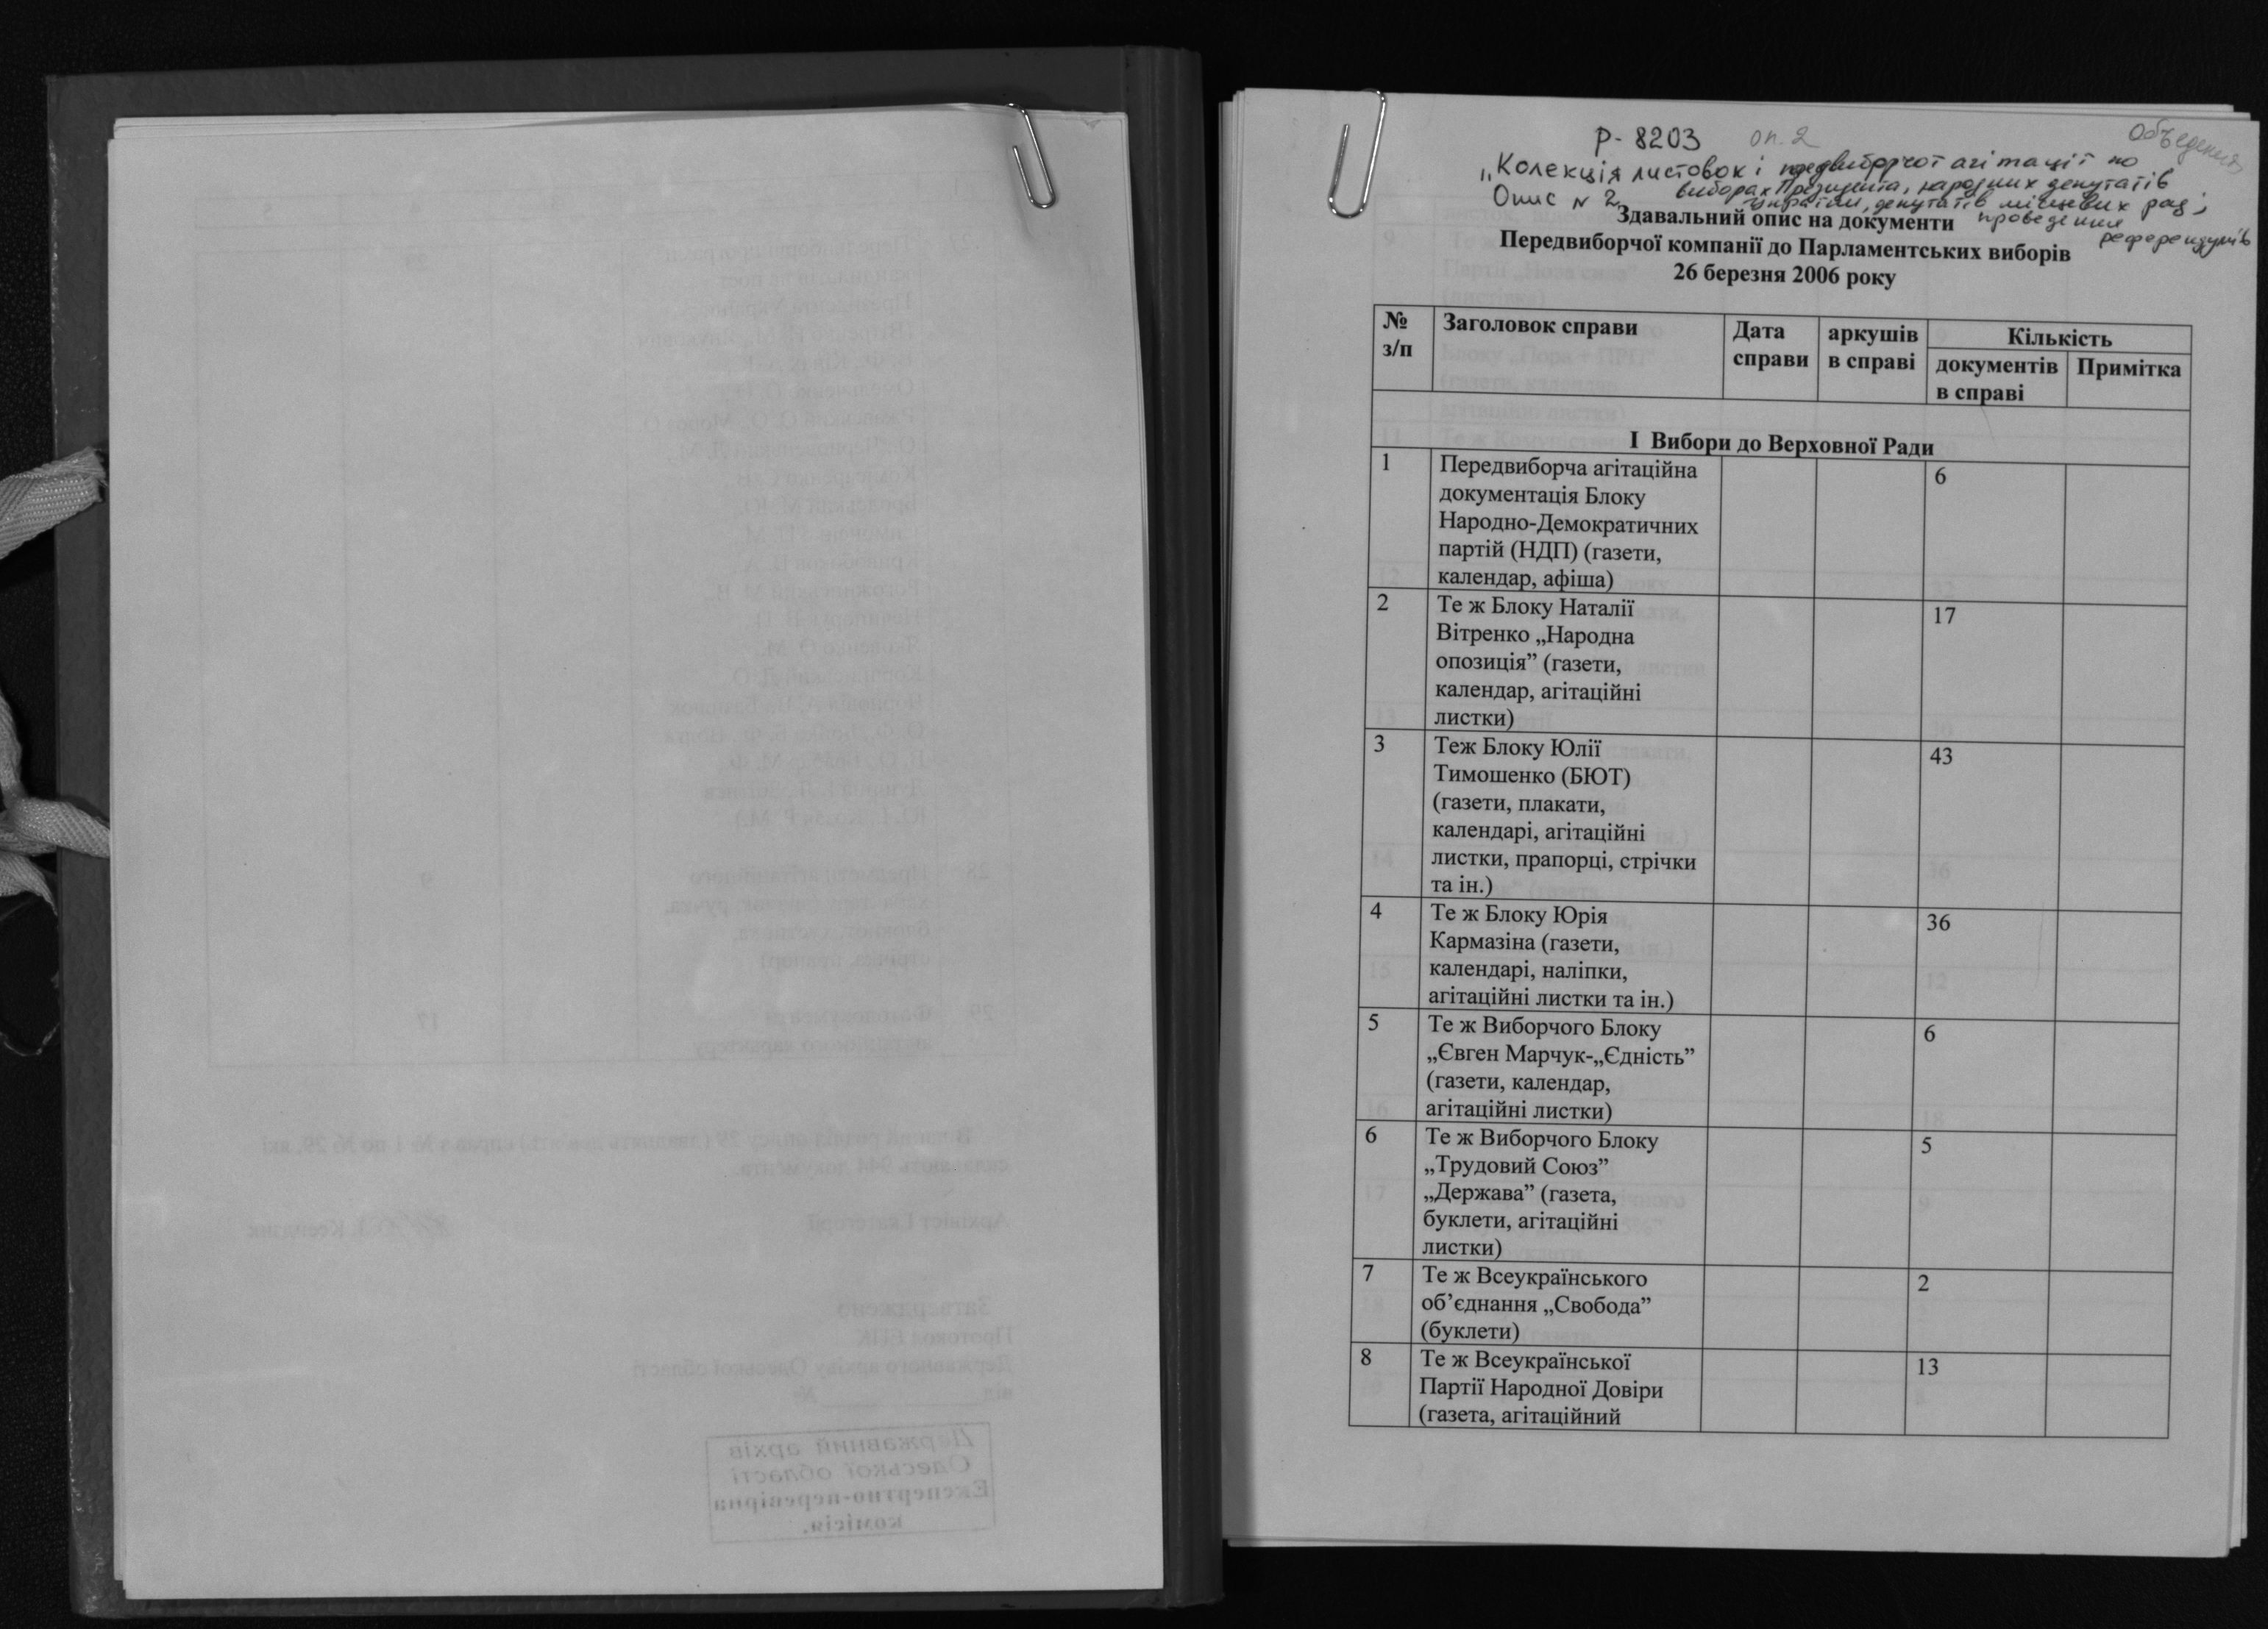 Р-8203 оп. 2
„Колекція листовок і предвиборчої агітації по
виборах Президента, народних депутатів
України, депутатів місцевих рад;
Опис № 2
проведення
референдумів
Здавальний опис на документи
Передвиборчої компанії до Парламентських виборів
26 березня 2006 року
№ з/п
Заголовок справи
Дата справи
аркушів в справі
Кількість
документів в справі
Примітка
І Вибори до Верховної Ради
1 Передвиборча агітаційна 6
документація Блоку
Народно-Демократичних
партій (НДП) (газети,
календар, афіша)
2 Те ж Блоку Наталії 17
Вітренко „Народна
опозиція” (газети,
календар, агітаційні
листки)
3 Теж Блоку Юлії 43
Тимошенко (БЮТ)
(газети, плакати,
календарі, агітаційні
листки, прапорці, стрічки
та ін.)
4 Те ж Блоку Юрія 36
Кармазіна (газети,
календарі, наліпки,
агітаційні листки та ін.)
5 Те ж Виборчого Блоку 6
„Євген Марчук-„Єдність”
(газети, календар,
агітаційні листки)
6 Те ж Виборчого Блоку 5
„Трудовий Союз”
„Держава” (газета,
буклети, агітаційні
листки)
7 Те ж Всеукраїнського 2
об’єднання „Свобода”
(буклети)
8 Те ж Всеукраїнської 13
Партії Народної Довіри
(газета, агітаційний